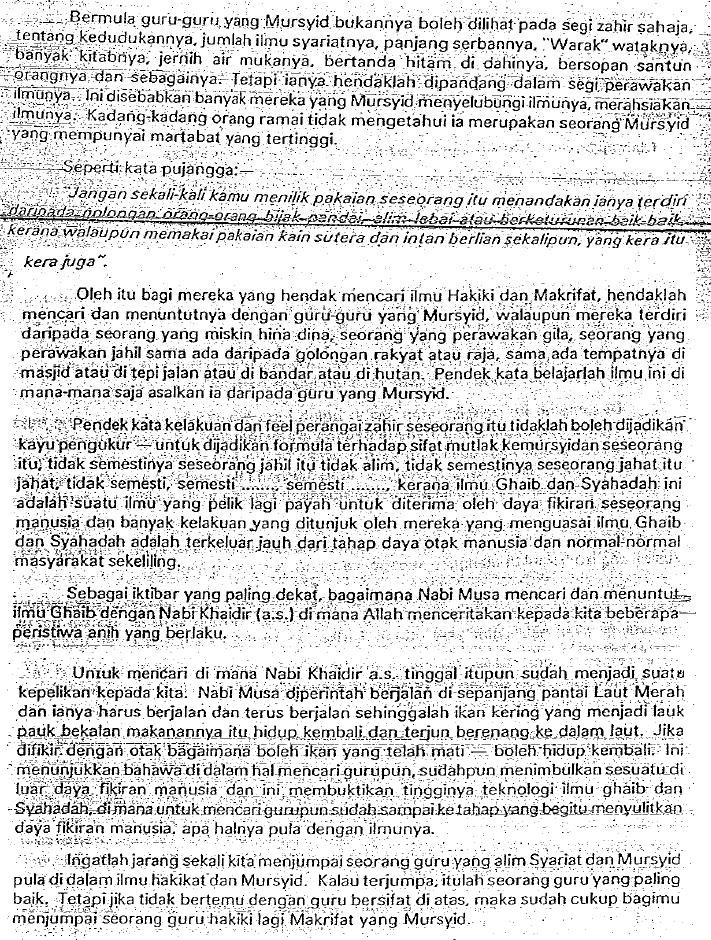 Bermula guru-guru yang Mursyid bukannya boleh dilihat pada segi zahir sahaja,
tentang kedudukannya, jumlah ilmu syariatnya, panjang serbannya, "Warak" wataknya,
banyak kitabnya, jernih air mukanya, bertanda hitam di dahinya, bersopan santun
orangnya dan sebagainya. Tetapi ianya hendaklah dipandang dalam segi perawakan
ilmunya. Ini disebabkan banyak mereka yang Mursyid menyelubungi ilmunya, merahsiakan
ilmunya. Kadang-kadang orang ramai tidak mengetahui ia merupakan seorang Mursyid
yang mempunyai martabat yang tertinggi.
Seperti kata pujangga:—
"Jangan sekali-kali kamu menilik pakaian seseorang itu menandakan ianya terdiri
daripada golongan orang-orang bijak pandai, alim lebai atau berketurunan baik-baik,
kerana walaupun memakai pakaian kain sutera dan intan berlian sekalipun, yang kera itu
kera juga".
Oleh itu bagi mereka yang hendak mencari ilmu Hakiki dan Makrifat, hendaklah
mencari dan menuntutnya dengan guru-guru yang Mursyid, walaupun mereka terdiri
daripada seorang yang miskin hina dina, seorang yang perawakan gila, seorang yang
perawakan jahil sama ada daripada golongan rakyat atau raja, sama ada tempatnya di
masjid atau di tepi jalan atau di bandar atau di hutan. Pendek kata belajarlah ilmu ini di
mana-mana saja asalkan ia daripada guru yang Mursyid.
Pendek kata kelakuan dan feel perangai zahir seseorang itu tidaklah boleh dijadikan
kayu pengukur — untuk dijadikan formula terhadap sifat mutlak kemursyidan seseorang
itu, tidak semestinya seseorang jahil itu tidak alim, tidak semestinya seseorang jahat itu
jahat, tidak semesti, semesti ....... semesti ......., kerana ilmu Ghaib dan Syahadah ini
adalah suatu ilmu yang pelik lagi payah untuk diterima oleh daya fikiran seseorang
manusia dan banyak kelakuan yang ditunjuk oleh mereka yang menguasai ilmu Ghaib
dan Syahadah adalah terkeluar jauh dari tahap daya otak manusia dan normal-normal
masyarakat sekeliling.
Sebagai iktibar yang paling dekat, bagaimana Nabi Musa mencari dan menuntut
ilmu Ghaib dengan Nabi Khaidir (a.s.) di mana Allah menceritakan kepada kita beberapa
peristiwa anih yang berlaku.
Untuk mencari di mana Nabi Khaidir a.s. tinggal itupun sudah menjadi suatu
kepelikan kepada kita. Nabi Musa diperintah berjalan di sepanjang pantai Laut Merah
dan ianya harus berjalan dan terus berjalan sehinggalah ikan kering yang menjadi lauk
pauk bekalan makanannya itu hidup kembali dan terjun berenang ke dalam laut. Jika
difikir dengan otak bagaimana boleh ikan yang telah mati — boleh hidup kembali. Ini
menunjukkan bahawa di dalam hal mencari gurupun, sudahpun menimbulkan sesuatu di
luar daya fikiran manusia dan ini membuktikan tingginya teknologi ilmu ghaib dan
Syahadah, di mana untuk mencari gurupun sudah sampai ke tahap yang begitu menyulitkan
daya fikiran manusia, apa halnya pula dengan ilmunya.
Ingatlah jarang sekali kita menjumpai seorang guru yang alim Syariat dan Mursyid
pula di dalam ilmu hakikat dan Mursyid. Kalau terjumpa, itulah seorang guru yang paling
baik. Tetapi jika tidak bertemu dengan guru bersifat di atas, maka sudah cukup bagimu
menjumpai seorang guru hakiki lagi Makrifat yang Mursyid.